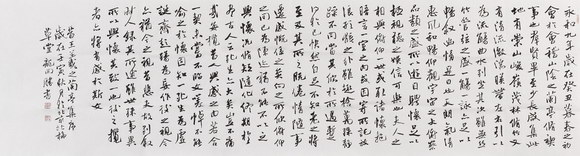 永和九年歲在癸丑暮春之初
會於會稽山陰之蘭亭脩禊
事也群賢畢至少長咸集此
地有崇山峻嶺茂林脩竹又
有清流激湍映帶左右引以
為流觴曲水列坐其次雖無絲
竹管弦之盛一觴一詠亦足以
暢敘幽情是日也天朗氣清
惠風和暢仰觀宇宙之大俯察
品類之盛所以遊目騁懷足以
極視聽之娛信可樂也夫人之
相與俯仰一世或取諸懷抱
晤言一室之內或因寄所託放
浪形骸之外雖趣舍萬殊靜
躁不同當其欣於所遇暫
得於己快然自足不知老之將
至及其所之既惓情隨事
遷感慨係之矣向之所欣俛仰
之間以為陳迹猶不能不以之
興懷況脩短隨化終期於
盡古人云死生亦大矣豈不痛
哉每攬昔人興感之由若合
一契未嘗不臨文嗟悼不能
喻之於懷固知一死生為虛
誕齊彭殤為妄作後之視今
亦由今之視昔悲夫故列敘
時人錄其所述雖世殊事異
所以興懷其致一也後之攬
者亦將有感於斯文
書王羲之蘭亭集序
歲在壬寅秋月於北京
草堂